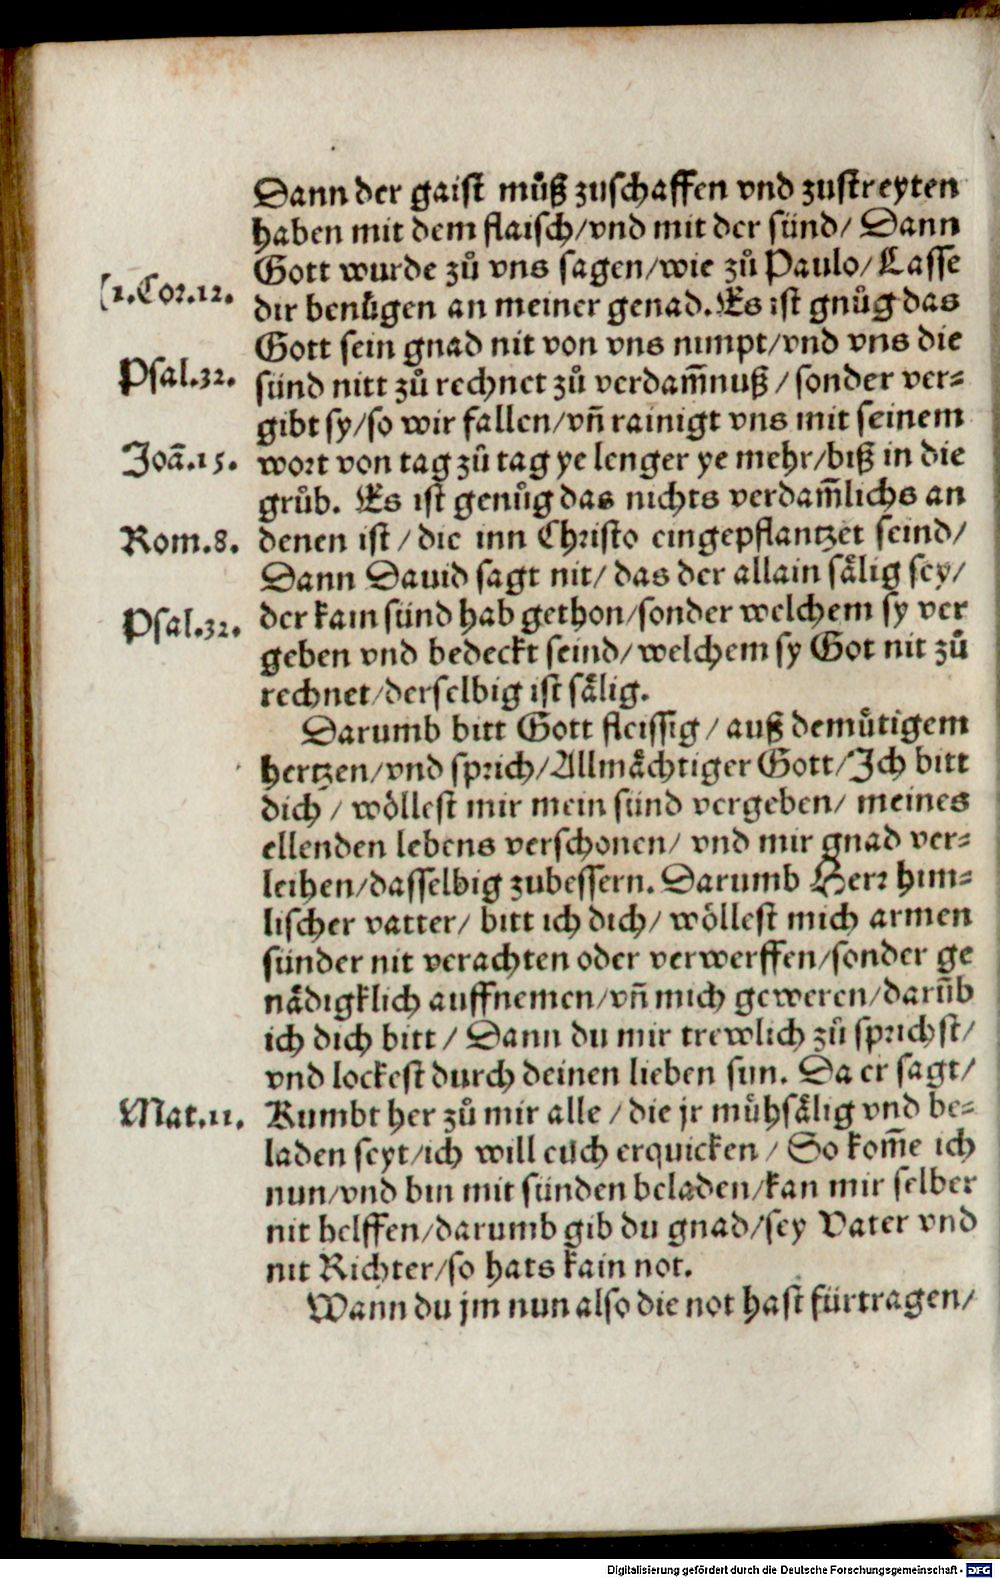 Dann der gaist můß zuschaffen vnd zustreyten
haben mit dem flaisch/vnd mit der sünd/ Dann
Gott wurde zů vns sagen/wie zů Paulo/ Lasse
[2.Cor.12.
dir benůgen an meiner genad. Es ist gnůg das
Gott sein gnad nit von vns nimpt/vnd vns die
Psal.32.
sünd nitt zů rechnet zů verdam̃nuß / sonder ver=
gibt sy/so wir fallen/vñ rainigt vns mit seinem
Joã.15.
wort von tag zů tag ye lenger ye mehr/biß in die
grůb. Es ist genůg das nichts verdam̃lichs an
Rom.8.
denen ist / die inn Christo eingepflantzet seind/
Dann Dauid sagt nit/ das der allain sålig sey/
Psal.32.
der kain sünd hab gethon/sonder welchem sy ver
geben vnd bedeckt seind/welchem sy Got nit zů
rechnet/derselbig ist sålig.
Darumb bitt Gott fleissig / auß demůtigem
hertzen/vnd sprich/Allmåchtiger Gott/Ich bitt
dich / wöllest mir mein sünd vergeben/ meines
ellenden lebens verschonen/ vnd mir gnad ver=
leihen/dasselbig zubessern. Darumb Herr him=
lischer vatter/ bitt ich dich/ wöllest mich armen
sünder nit verachten oder verwerffen/sonder ge
nådigklich auffnemen/vñ mich geweren/darũb
ich dich bitt / Dann du mir trewlich zů sprichst/
vnd lockest durch deinen lieben sun. Da er sagt/
Mat.11.
Kumbt her zů mir alle / die jr můhsålig vnd be=
laden seyt/ich will euch erquicken / So kom̃e ich
nun/vnd bin mit sünden beladen/kan mir selber
nit helffen/darumb gib du gnad/sey Vater vnd
nit Richter/so hats kain not.
Wann du jm nun also die not hast fürtragen/
Digitalisierung gefördert durch die Deutsche Forschungsgemeinschaft - DFG